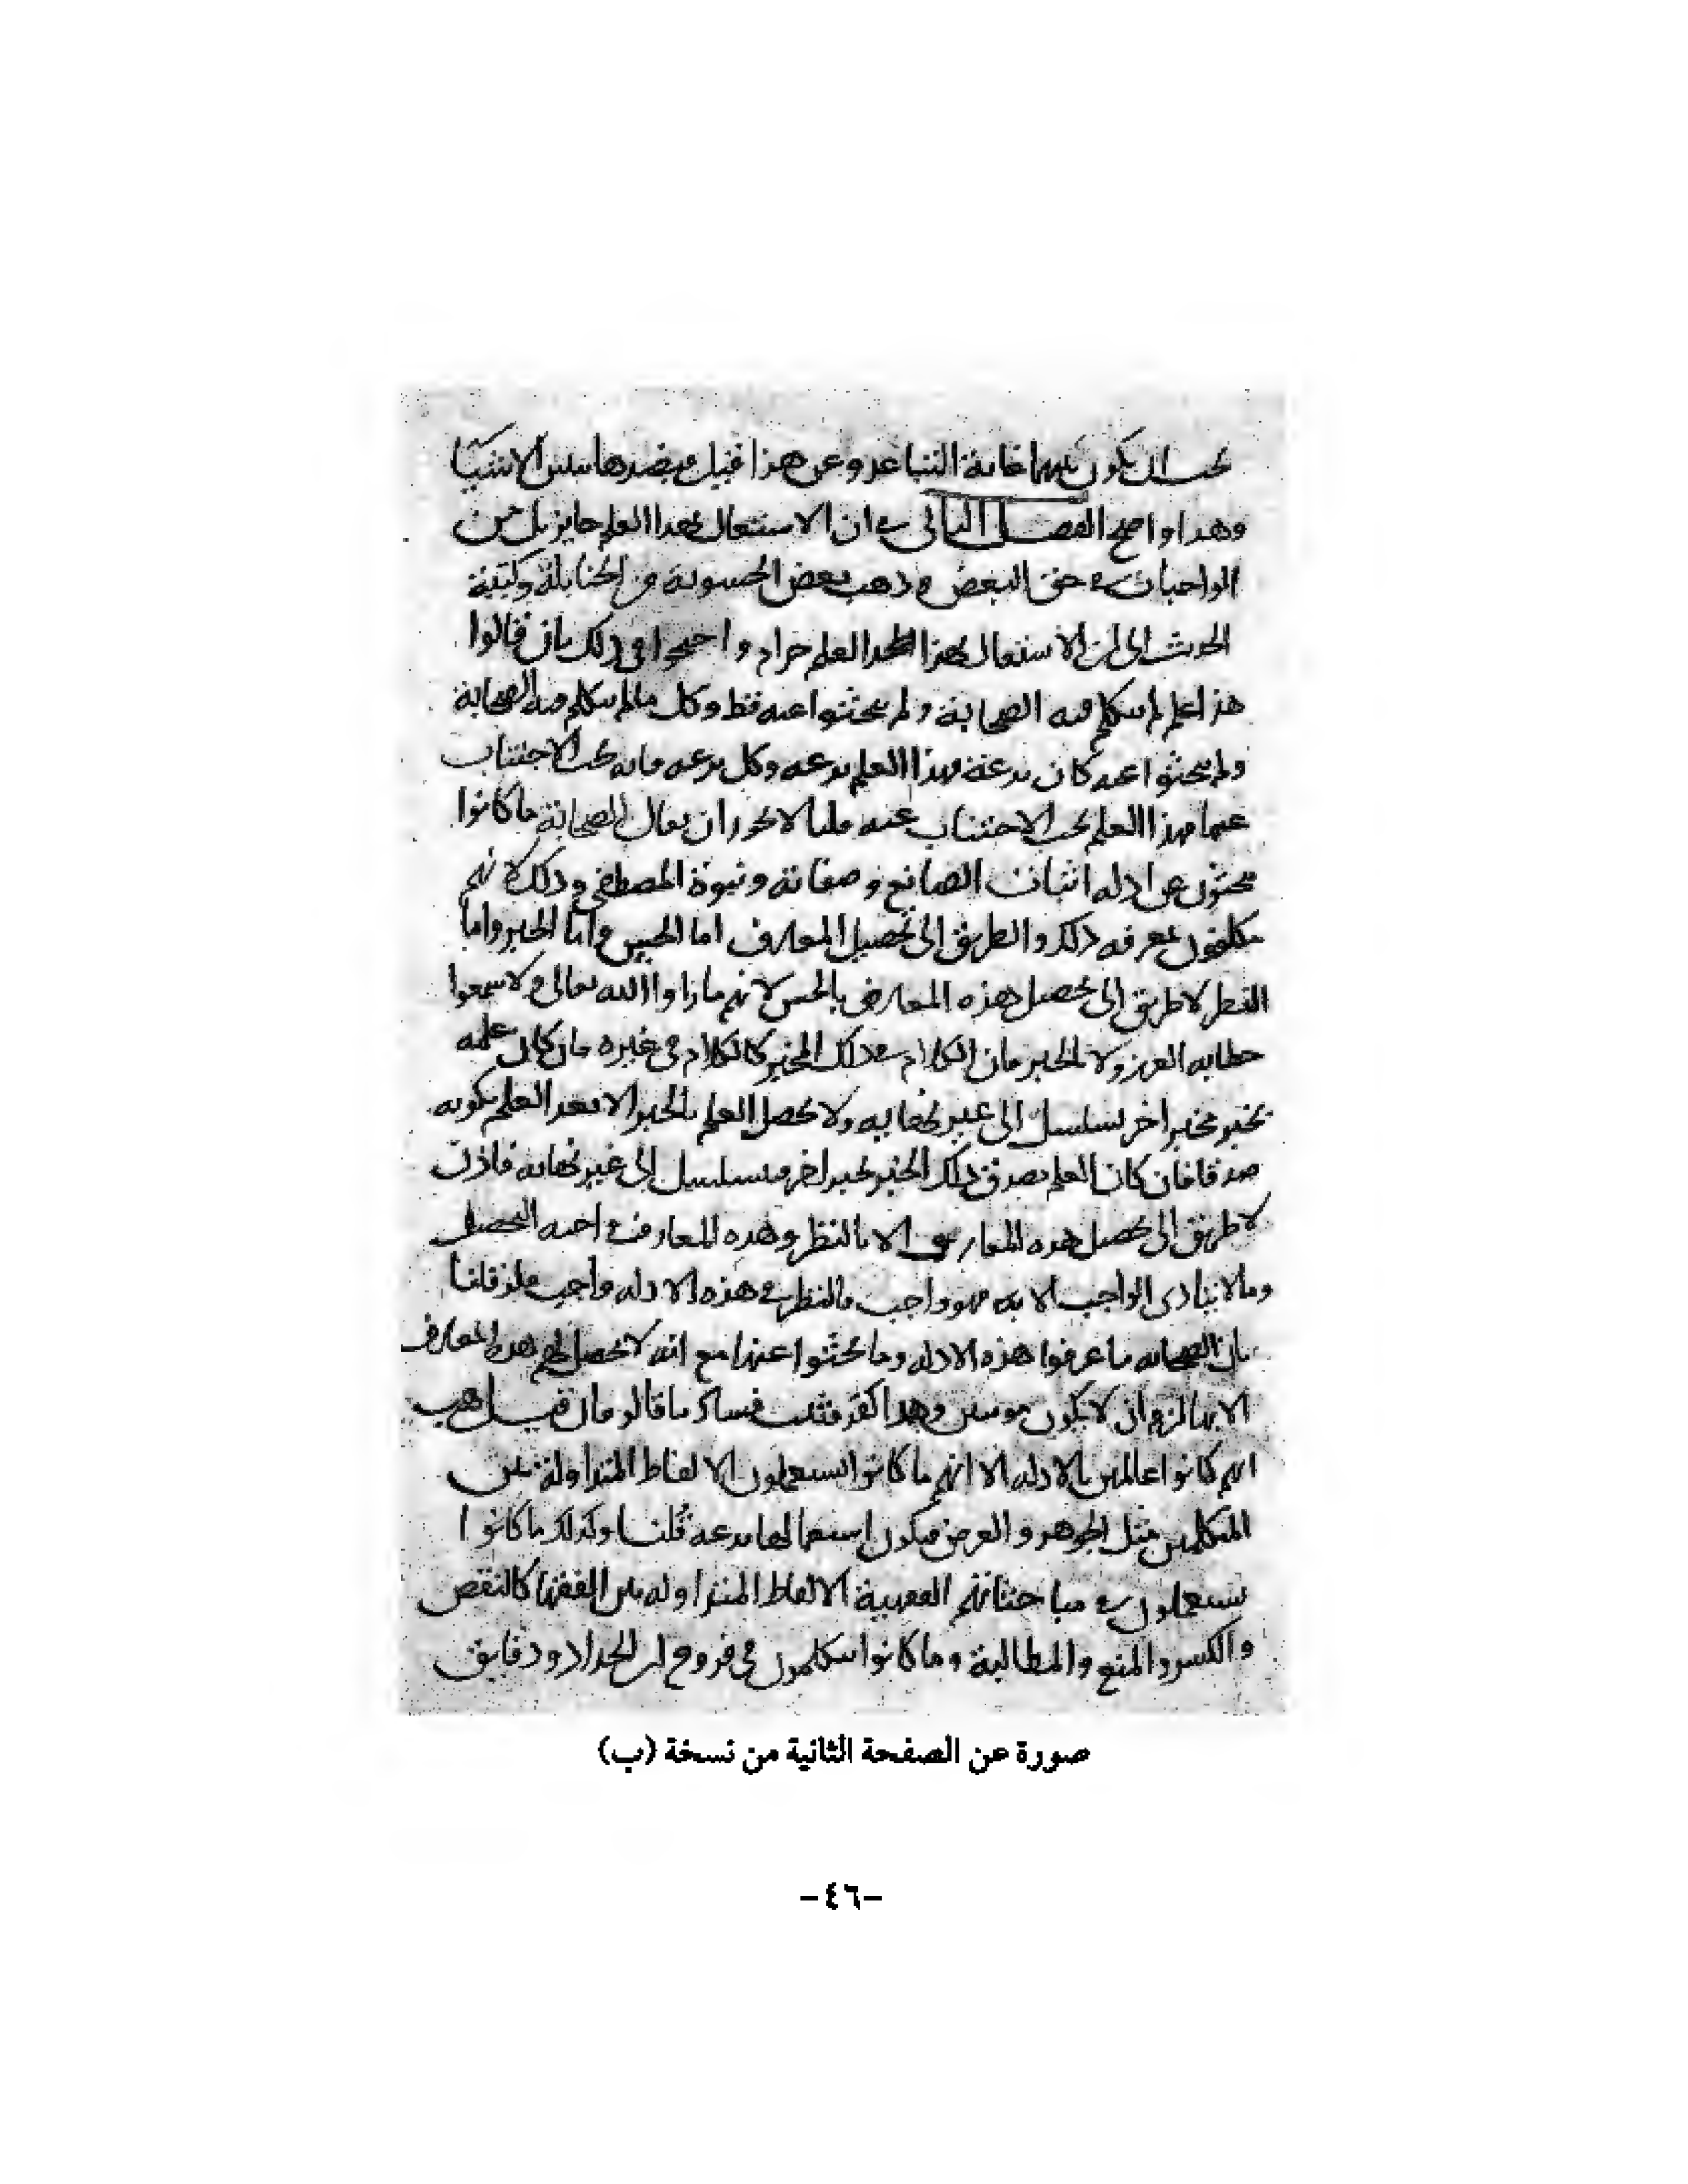 يجب ان يكون بينهما غاية التباعد وعن هذا قيل وبضدها تتبين الاشيا
وهذا واضح الفصل الثاني في ان الاشتغال بهذا العلم جايز بل من
الواجبات في حق البعض وذهب بعض الحشوية من الحنابلة وكتبة
الحديث الى ان الاشتغال بهذا العلم حرام واحتجوا في ذلك بان قالوا
هذا علم لم يتكلم فيه الصحابة ولم يبحثوا عنه قط وكل ما لم يتكلم فيه الصحابة
ولم يبحثوا عنه كان بدعة فهذا العلم بدعة وكل بدعة فانه يجب الاجتناب
عنها فهذا العلم يجب الاجتناب عنه قلنا لا يجوز ان يقال الصحابة ما كانوا
يبحثون عن ادلة اثبات الصانع وصفاته ونبوة المصطفى وذلك لانهم
مكلفون بمعرفة ذلك والطريق الى تحصيل المعارف اما الحس واما الخبر واما
النظر لا طريق الى تحصيل هذه المعارف بالحس لانهم ما راوا الله تعالى ولا سمعوا
خطابه العزيز ولا بالخبر فان الكلام في ذلك المخبر كالكلام في غيره فان كان علمه
بخبر مخبر اخر تسلسل الى غير نهاية ولا يحصل العلم بالخبر الا بعد العلم بكونه
صدقا فان كان العلم بصدق ذلك الخبر بخبر اخر فيتسلسل الى غير نهاية فاذن
لا طريق الى تحصيل هذه المعارف الا بالنظر وهذه المعارف واجبة التحصيل
وما لا يتادى الواجب الا به فهو واجب فالنظر في هذه الادلة واجب فلو قلنا
بان الصحابة ما عرفوا هذه الادلة وما بحثوا عنها مع انه لا تحصل لهم هذه المعارف
الا بها لزم ان لا يكون مومنين وهذا كفر فثبت فساد ما قالوه فان قيل هب
انهم كانوا عالمين بالادلة الا انهم ما كانوا يستعملون الالفاظ المتداولة بين
المتكلمين مثل الجوهر والعرض فيكون استعمالها بدعة قلنا وكذلك ما كانوا
يستعملون في مباحثاتهم الفقهية الالفاظ المتداولة بين الفقها كالنقض
والكسر والمنع والمطالبة وما كانوا يتكلمون في فروح ابن الحداد ودقايق
صورة عن الصفحة الثانية من نسخة (ب)
-٤٦-